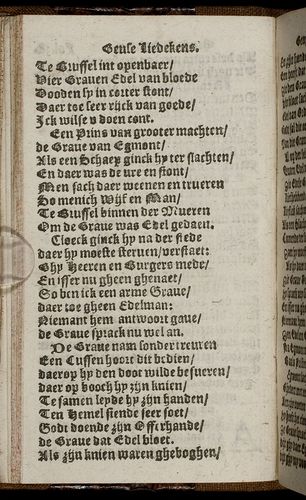 Geuse Liedekens.
Te Brussel int openbaer/
Vier Grauen Edel van bloede
Dooden sy in corter stont/
Daer toe seer rijck van goede/
Ick wilse v doen cont.
Een Prins van grooter machten/
de Graue van Egmont/
Als een Schaep ginck hy ter slachten/
En daer was de ure en stont/
Men sach daer weenen en trueren
So menich Wijf en Man/
Te Brussel binnen der Mueren
Om de Graue was Edel gedaen.
Cloeck ginck hy na der stede
daer hy moeste steruen/verstaet:
Ghy Heeren en Burgers mede/
En isser nu gheen ghenaet/
So ben ick een arme Graue/
daer toe gheen Edelman:
Niemant hem antwoort gaue/
de Graue sprack nu wel an.
De Graue nam sonder treuren
Een Cussen hoort dit bedien/
daerop hy den doot wilde besueren/
daer op booch hy zijn knien/
Te samen leyde hy zijn handen/
Ten Hemel siende seer soet/
Godt doende zijn Offerhande/
de Graue dat Edel bloet.
Als zijn knien waren gheboghen/